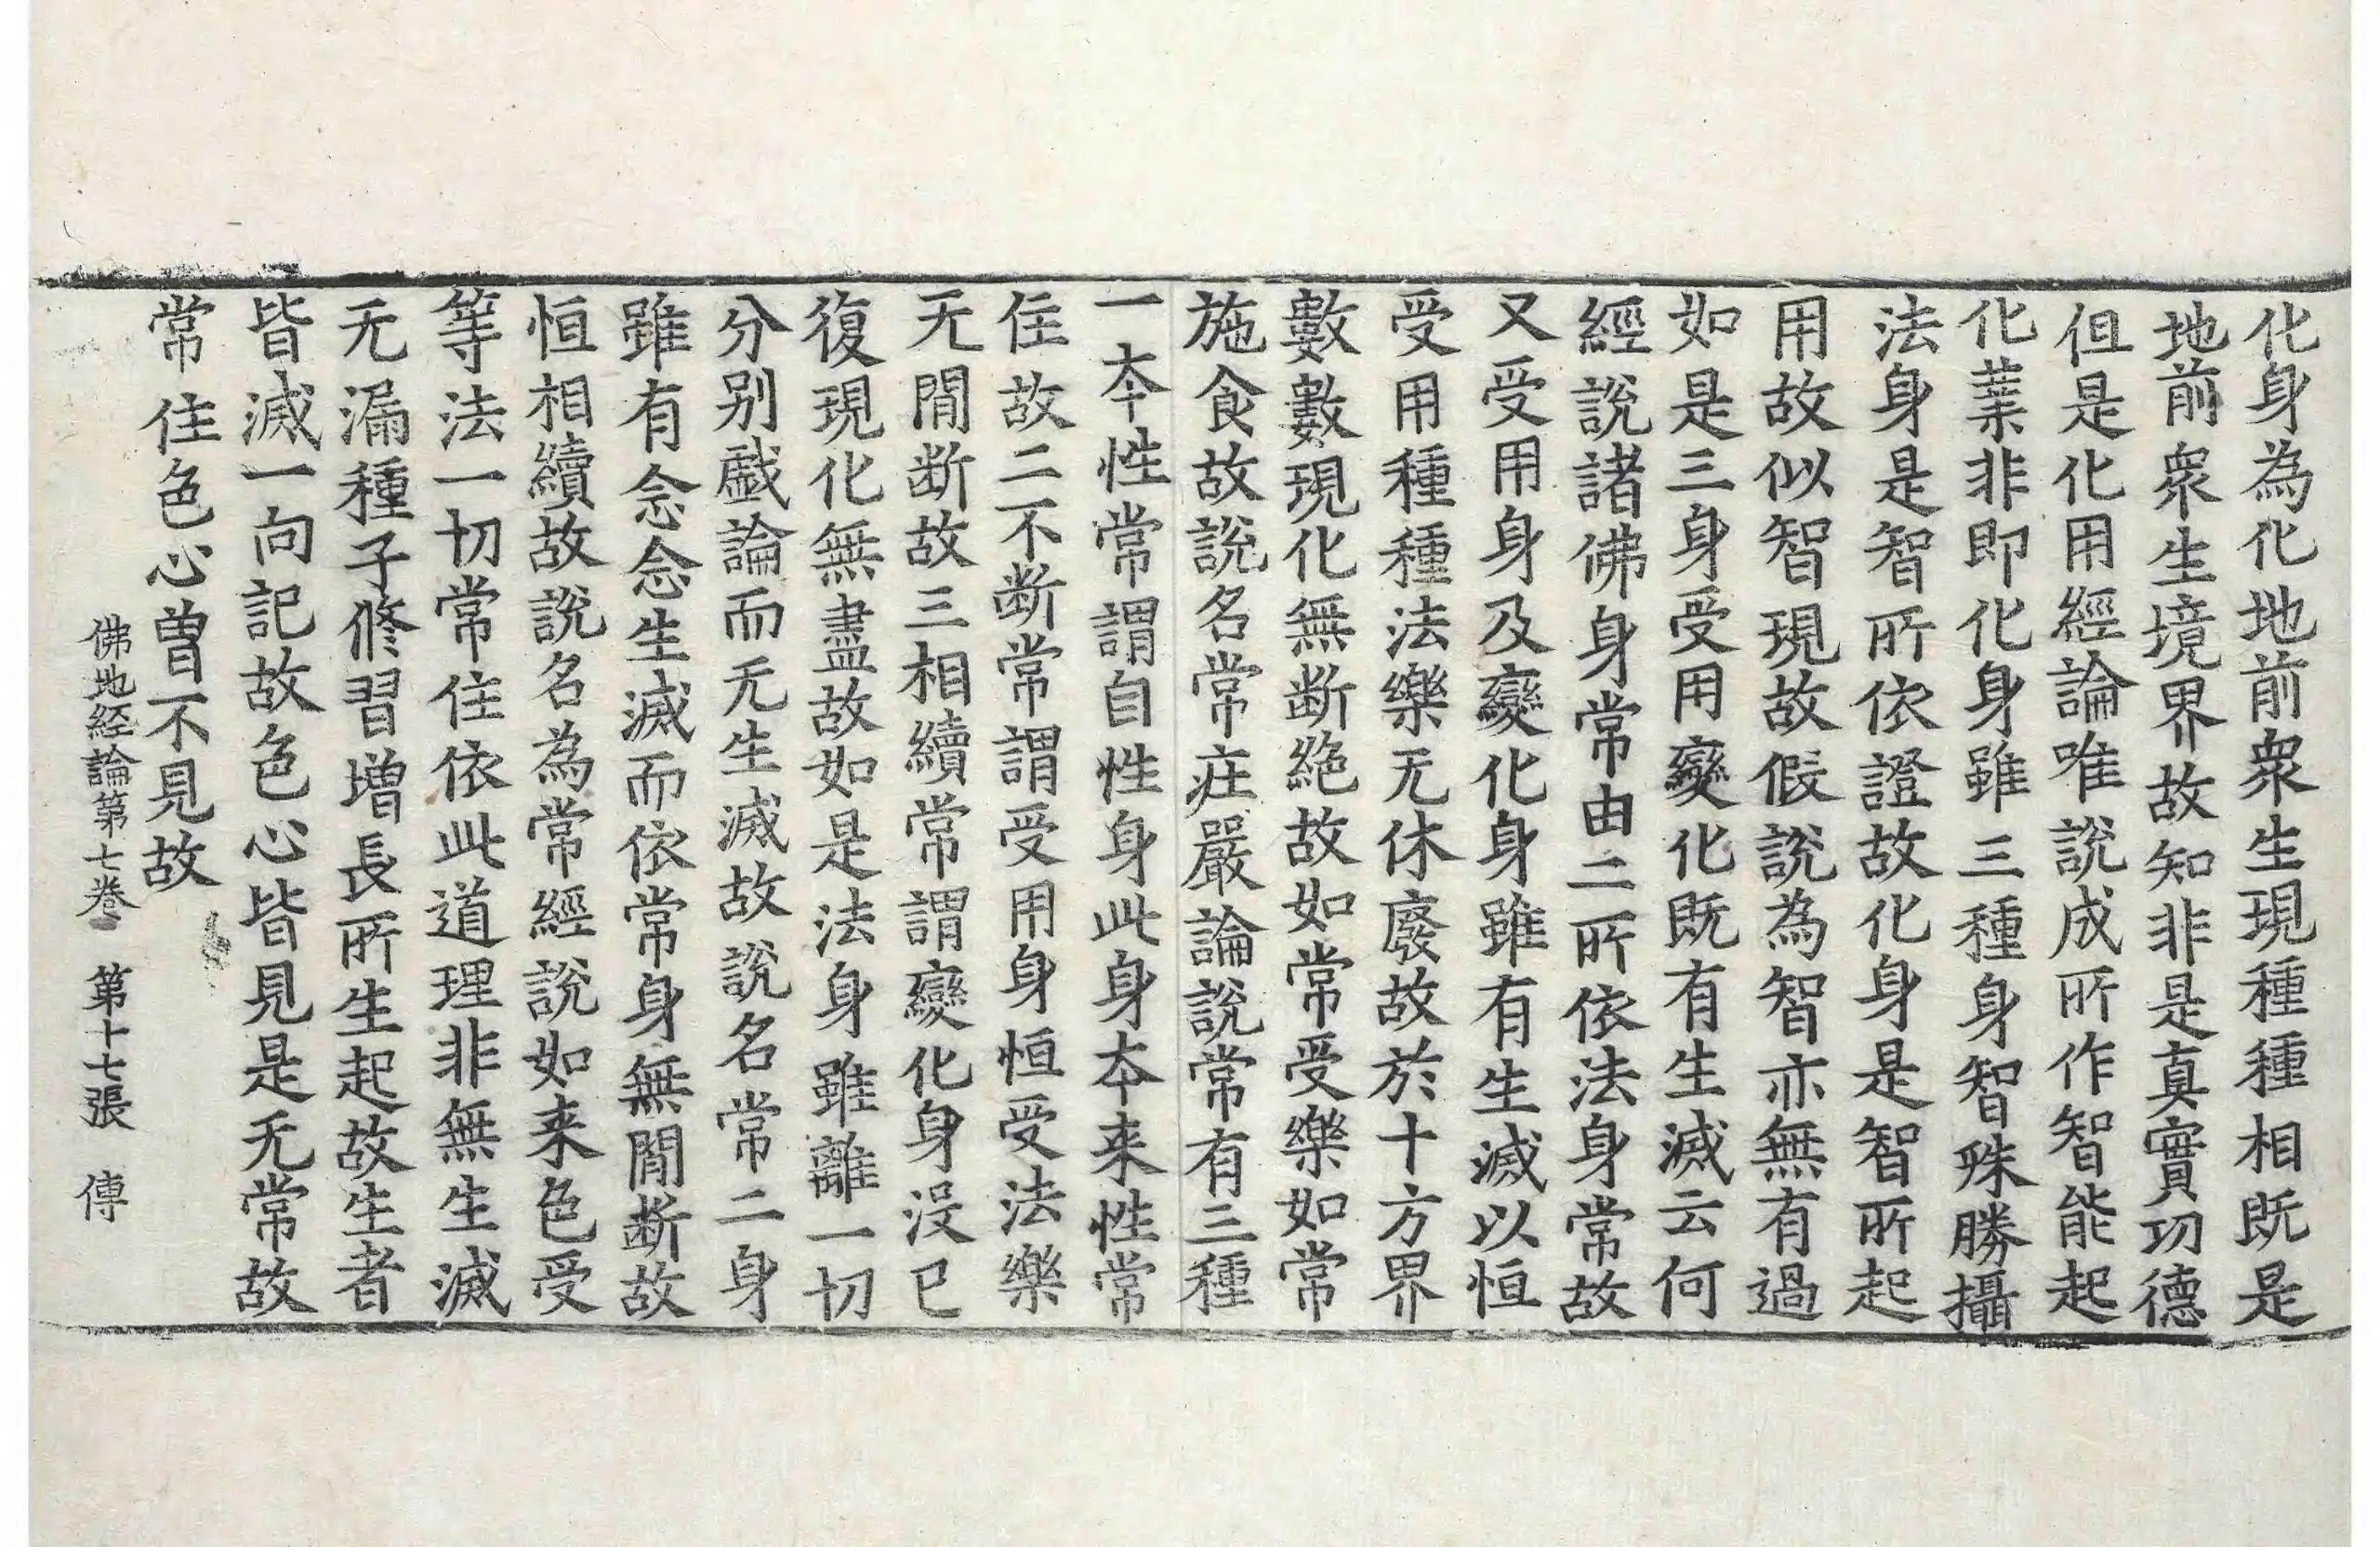 化身為化地前衆生現種種相既是
地前衆生境界故知非是真實功德
但是化用經論唯說成所作智能起
化業非即化身雖三種身智殊勝攝
法身是智所依證故化身是智所起
用故似智現故假說為智亦無有過
如是三身受用變化既有生滅云何
經說諸佛身常由二所依法身常故
又受用身及變化身雖有生滅以恒
受用種種法樂无休廢故於十方界
數數現化無断絕故如常受樂如常
施食故說名常疘嚴論說常有三種
一夲性常謂自性身此身夲来性常
住故二不断常謂受用身恒受法樂
无間断故三相續常謂變化身没已
復現化無盡故如是法身雖離一切
分别戱論而无生滅故說名常二身
雖有念念生滅而依常身無間断故
恒相續故說名為常經說如来色受
等法一切常住依此道理非無生滅
无漏種子修習增長所生起故生者
皆滅一向記故色心皆見是无常故
常住色心曾不見故
佛地經論第七卷 第十七張 傳